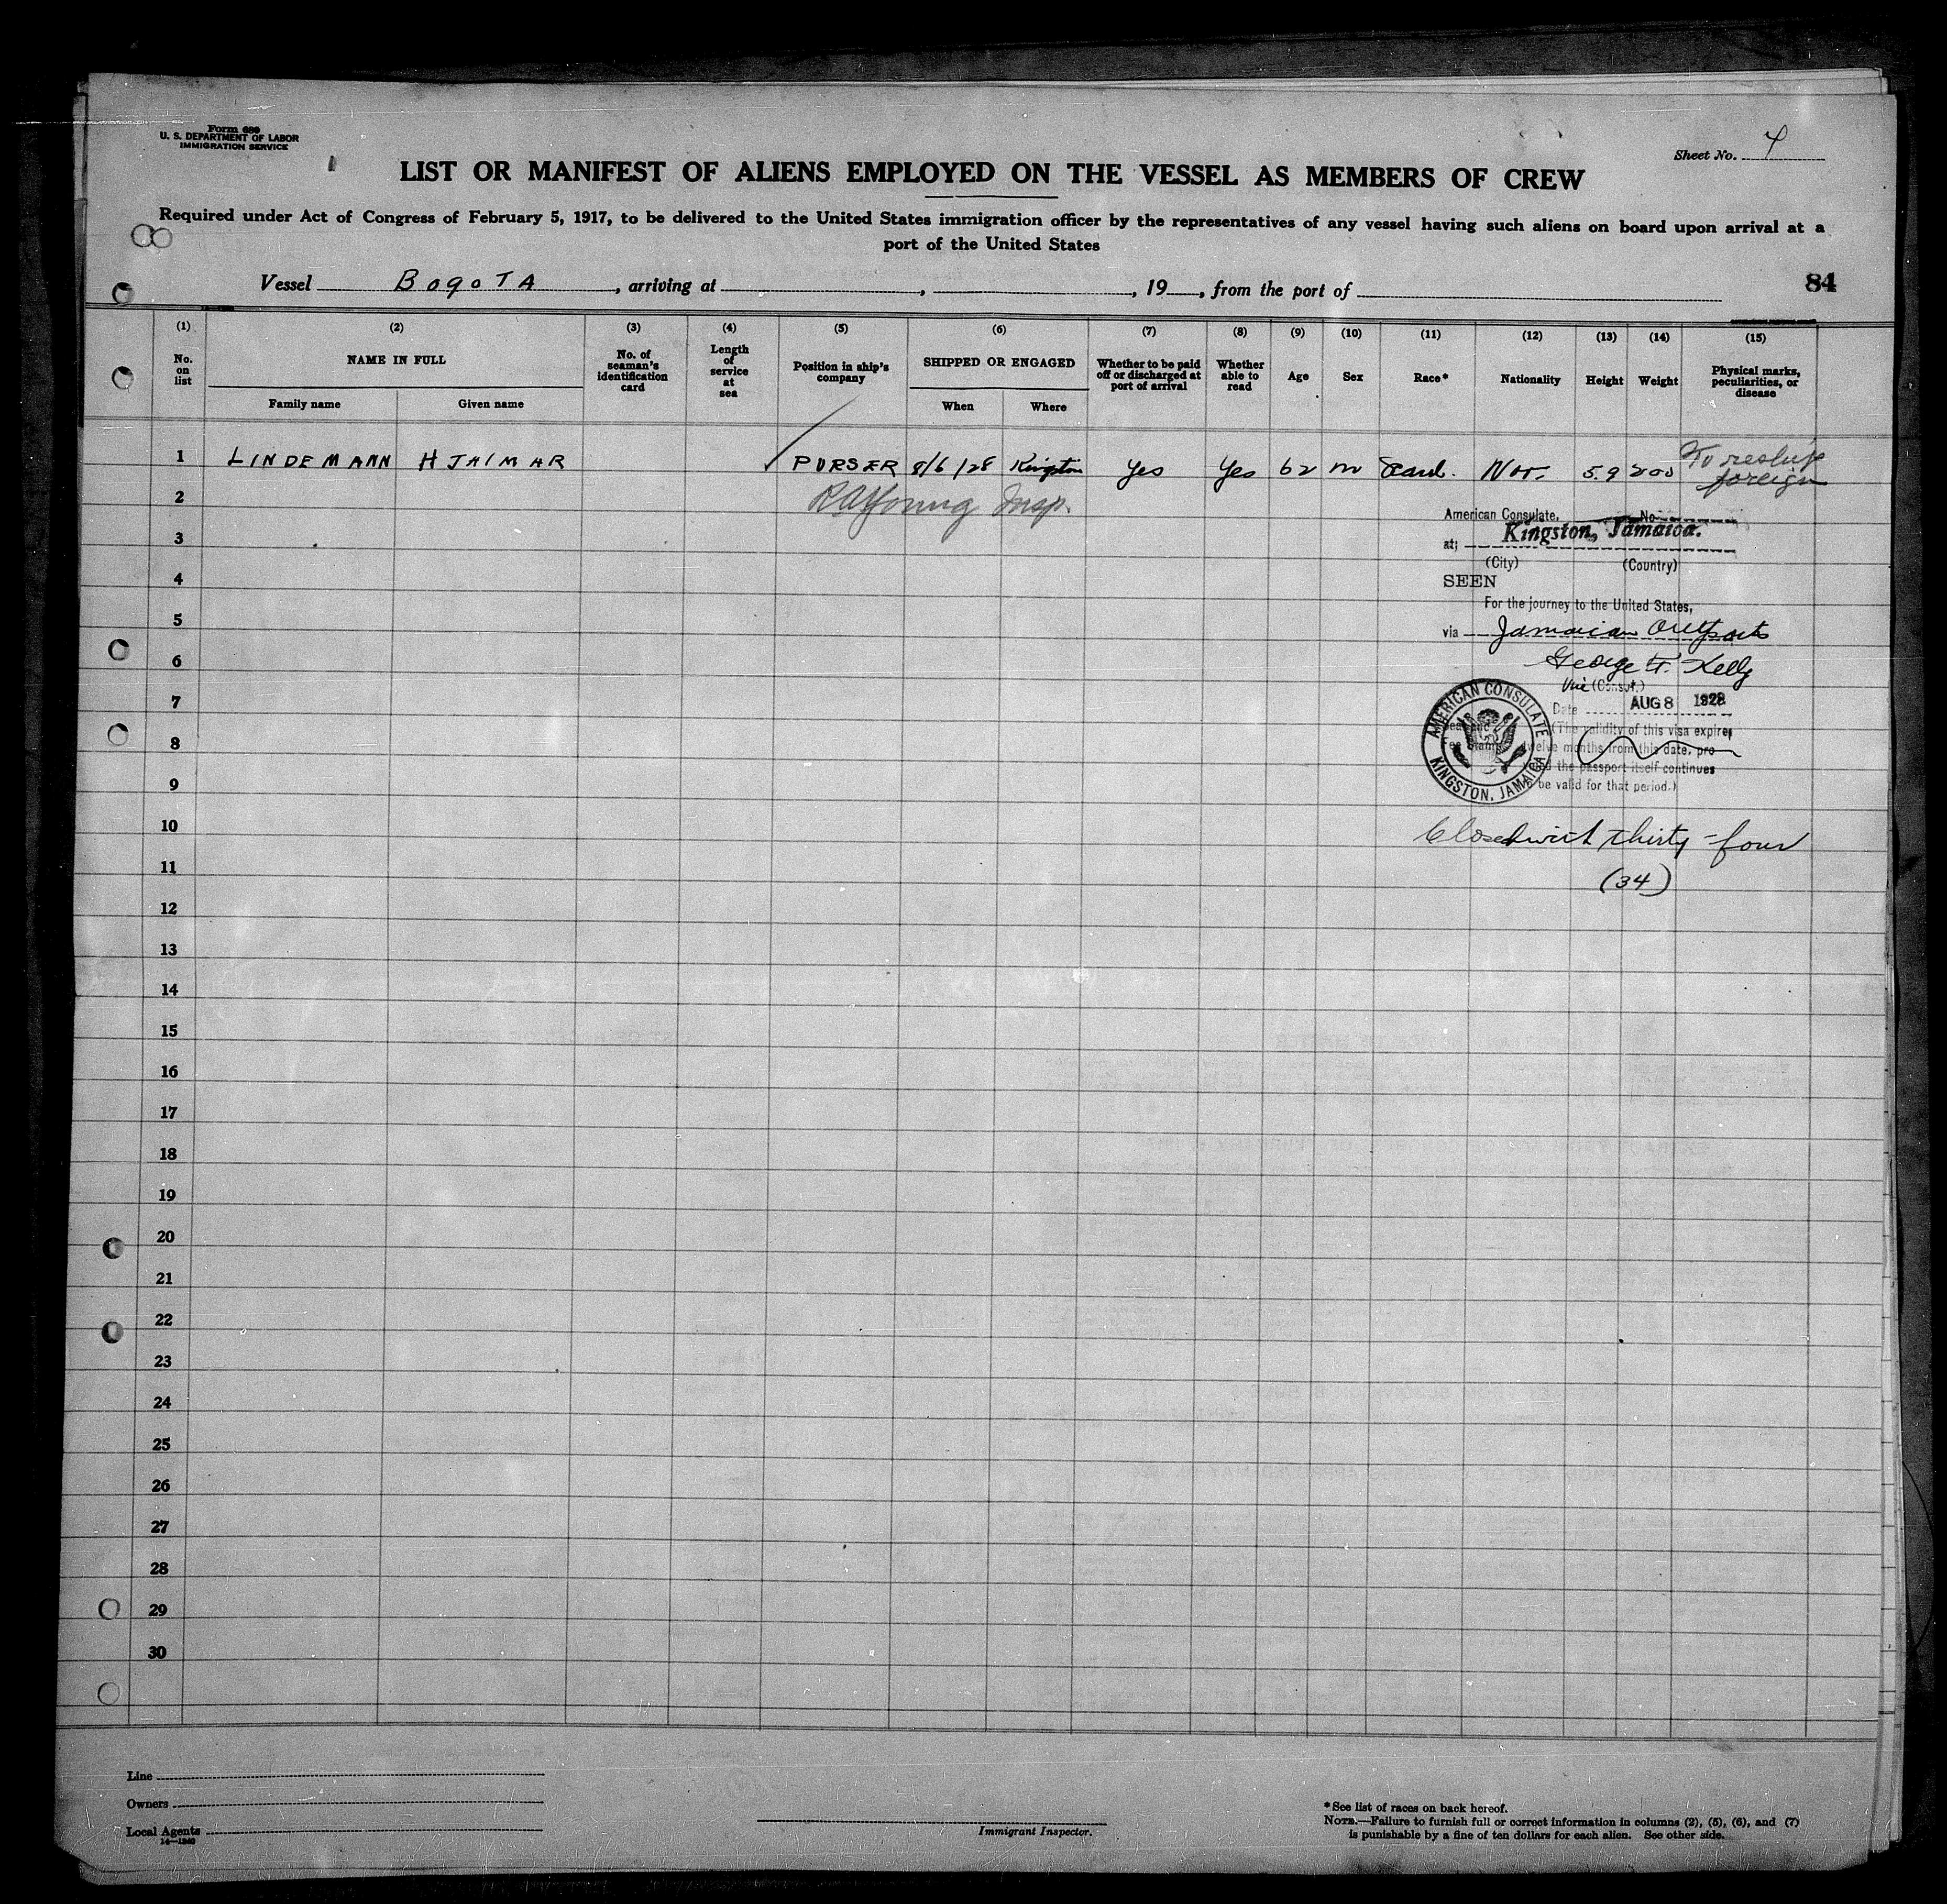 Form 680
U. S. DEPARTMENT OF LABOR
IMMIGRATION SERVICE
Sheet No. 4
LIST OR MANIFEST OF ALIENS EMPLOYED ON THE VESSEL AS MEMBERS OF CREW
Required under Act of Congress of February 5, 1917, to be delivered to the United States immigration officer by the representatives of any vessel having such aliens on board upon arrival at a
port of the United States
Vessel BogoTA, arriving at , , 19 , from the port of
84
(1) (2) (3) (4) (5) (6) (7) (8) (9) (10) (11) (12) (13) (14) (15)
No. on list
NAME IN FULL
Family name Given name
No. of seaman's identification card
Length of service at sea
Position in ship's company
SHIPPED OR ENGAGED
When Where
Whether to be paid off or discharged at port of arrival
Whether able to read
Age
Sex
Race*
Nationality
Height
Weight
Physical marks, peculiarities, or disease
1 LINDEMANN HJALMAR PURSER 8/6/28 Kingston Yes Yes 62 m Scand. Nor. 5.9 200 To reship
foreign
2 RAYoung Insp.
American Consulate, No
3
at; Kingston, Jamaica.
(City) (Country)
4
SEEN
For the journey to the United States,
5
via Jamaican Outports
6
George F. Kelly
Vice (Consul.)
7
Date AUG 8 1928
AMERICAN CONSULATE
KINGSTON, JAMAICA
(The validity of this visa expires
8
twelve months from this date, pro-
the passport itself continues
9
be valid for that period.)
10
Closed with thirty-four
11
(34)
12
13
14
15
16
17
18
19
20
21
22
23
24
25
26
27
28
29
30
Line
Owners
Local Agents
14—1240
Immigrant Inspector.
*See list of races on back hereof.
NOTE.—Failure to furnish full or correct information in columns (2), (5), (6), and (7)
is punishable by a fine of ten dollars for each alien. See other side.